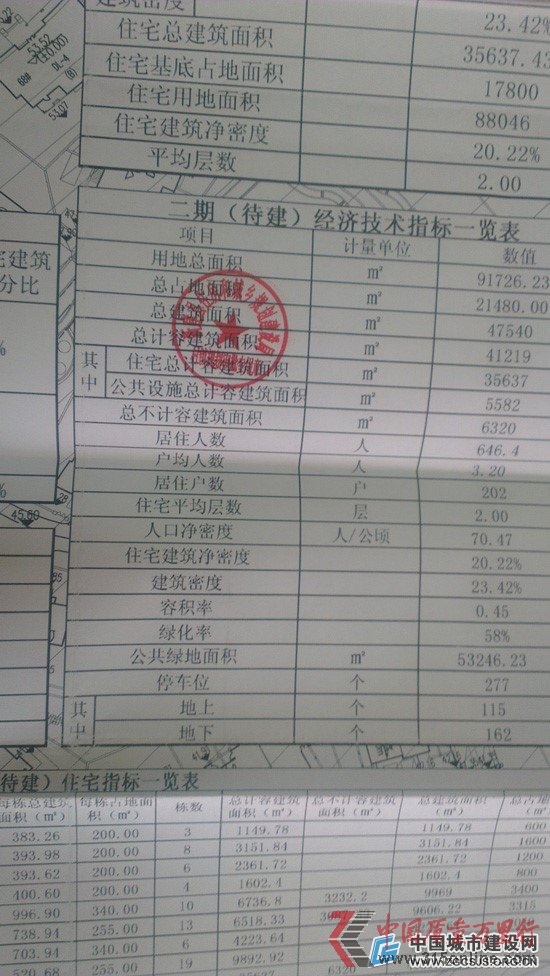 建筑密度 23.42%
住宅总建筑面积 35637.43
住宅基底占地面积 17800
住宅用地面积 88046
住宅建筑净密度 20.22%
平均层数 2.00
53.52
(±0.00)
68#
DL-4
(B)
53.07
宅建筑
分比
二期（待建）经济技术指标一览表
项目 计量单位 数值
用地总面积 m² 91726.23
总占地面积 m² 21480.00
总建筑面积 m² 47540
总计容建筑面积 m² 41219
其中 住宅总计容建筑面积 m² 35637
公共设施总计容建筑面积 m² 5582
总不计容建筑面积 m² 6320
居住人数 人 646.4
户均人数 人 3.20
居住户数 户 202
住宅平均层数 层 2.00
人口净密度 人/公顷 70.47
住宅建筑净密度 20.22%
建筑密度 23.42%
容积率 0.45
绿化率 58%
公共绿地面积 m² 53246.23
停车位 个 277
其中 地上 个 115
地下 个 162
45.60
（待建）住宅指标一览表
每栋总建筑面积（m²） 每栋占地面积（m²） 栋数 总计容建筑面积（m²） 总不计容建筑面积（m²） 总建筑面积（m²） 总占地
383.26 200.00 3 1149.78 1149.78 600
393.98 200.00 8 3151.84 3151.84 1600
393.62 200.00 6 2361.72 2361.72 1200
400.60 200.00 4 1602.4 1602.4 800
996.90 340.00 10 6736.8 3232.2 9969 3400
738.94 255.00 13 6518.33 9606.22 3315
703.94 340.00 6 4223.64
520.68 255.00 19 9892.92
35637 6320
中国质量万里行
中国城市建设网
www.zgcsjs.org.cn